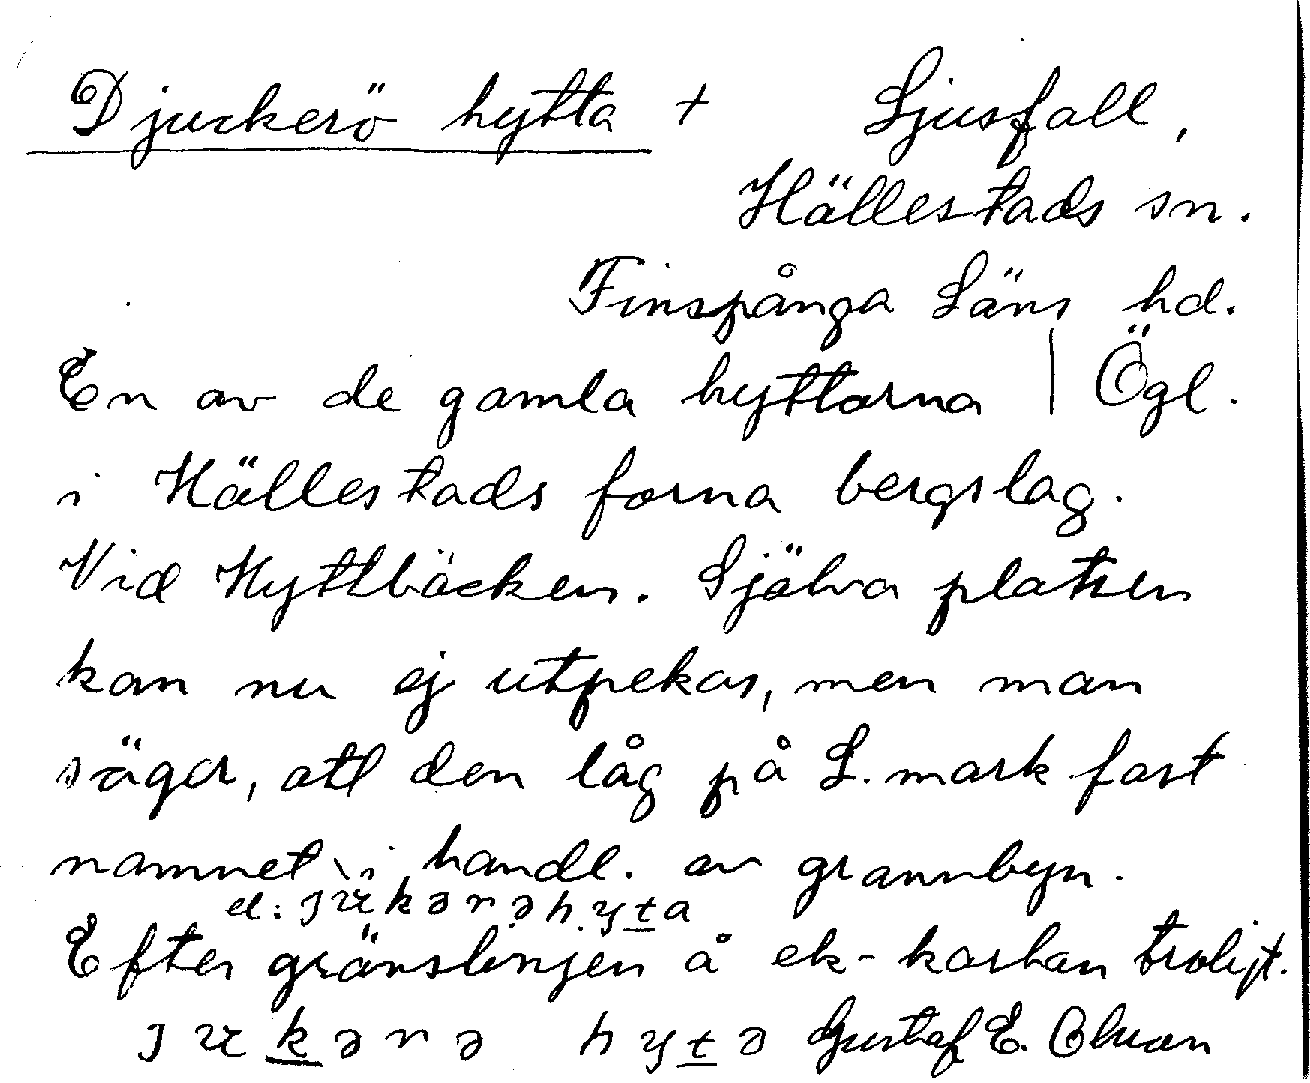 Djurkerö hytta + Ljusfall,
Hällestads sn.
Finspånga Läns hd.
En av de gamla hyttorna | Ögl.
i Hällestads forna bergslag.
Vid Hyttbäcken. Själva platsen
kan nu ej utpekas, men man
säger, att den låg på L. mark fast
namnet i handl. av grannbyn.
el:
Efter gränslinjen å ek-kartan troligt.
Gustaf E. Olsson